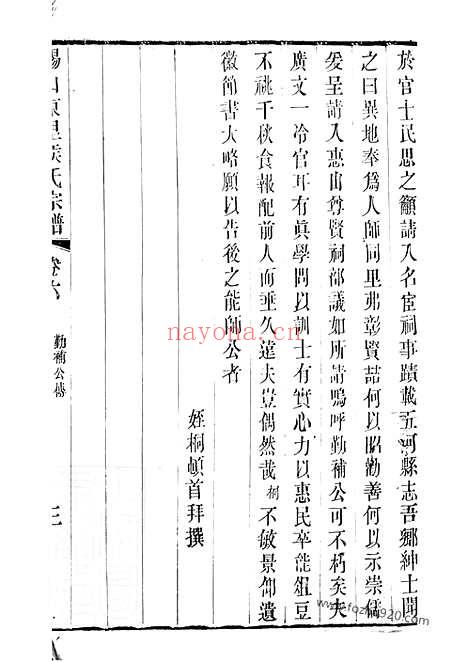 於官士民思之籲請入名宦祠事蹟載五河縣志吾鄉紳士聞
之曰異地奉爲人師同里弗彰賢喆何以昭勸善何以示崇儒
爰呈請入惠山尊賢祠部議如所請嗚呼勤補公可不朽矣夫
廣文一冷官耳有眞學問以訓士有實心力以惠民卒能俎豆
不祧千秋食報配前人而垂久遠夫豈偶然哉桐不敏景仰遺
徽節書大略願以告後之能師公者
姪桐頓首拜撰
錫山東里侯氏宗譜
卷六
勤補公傳
三
nayona.cn
www.fozhu920.com